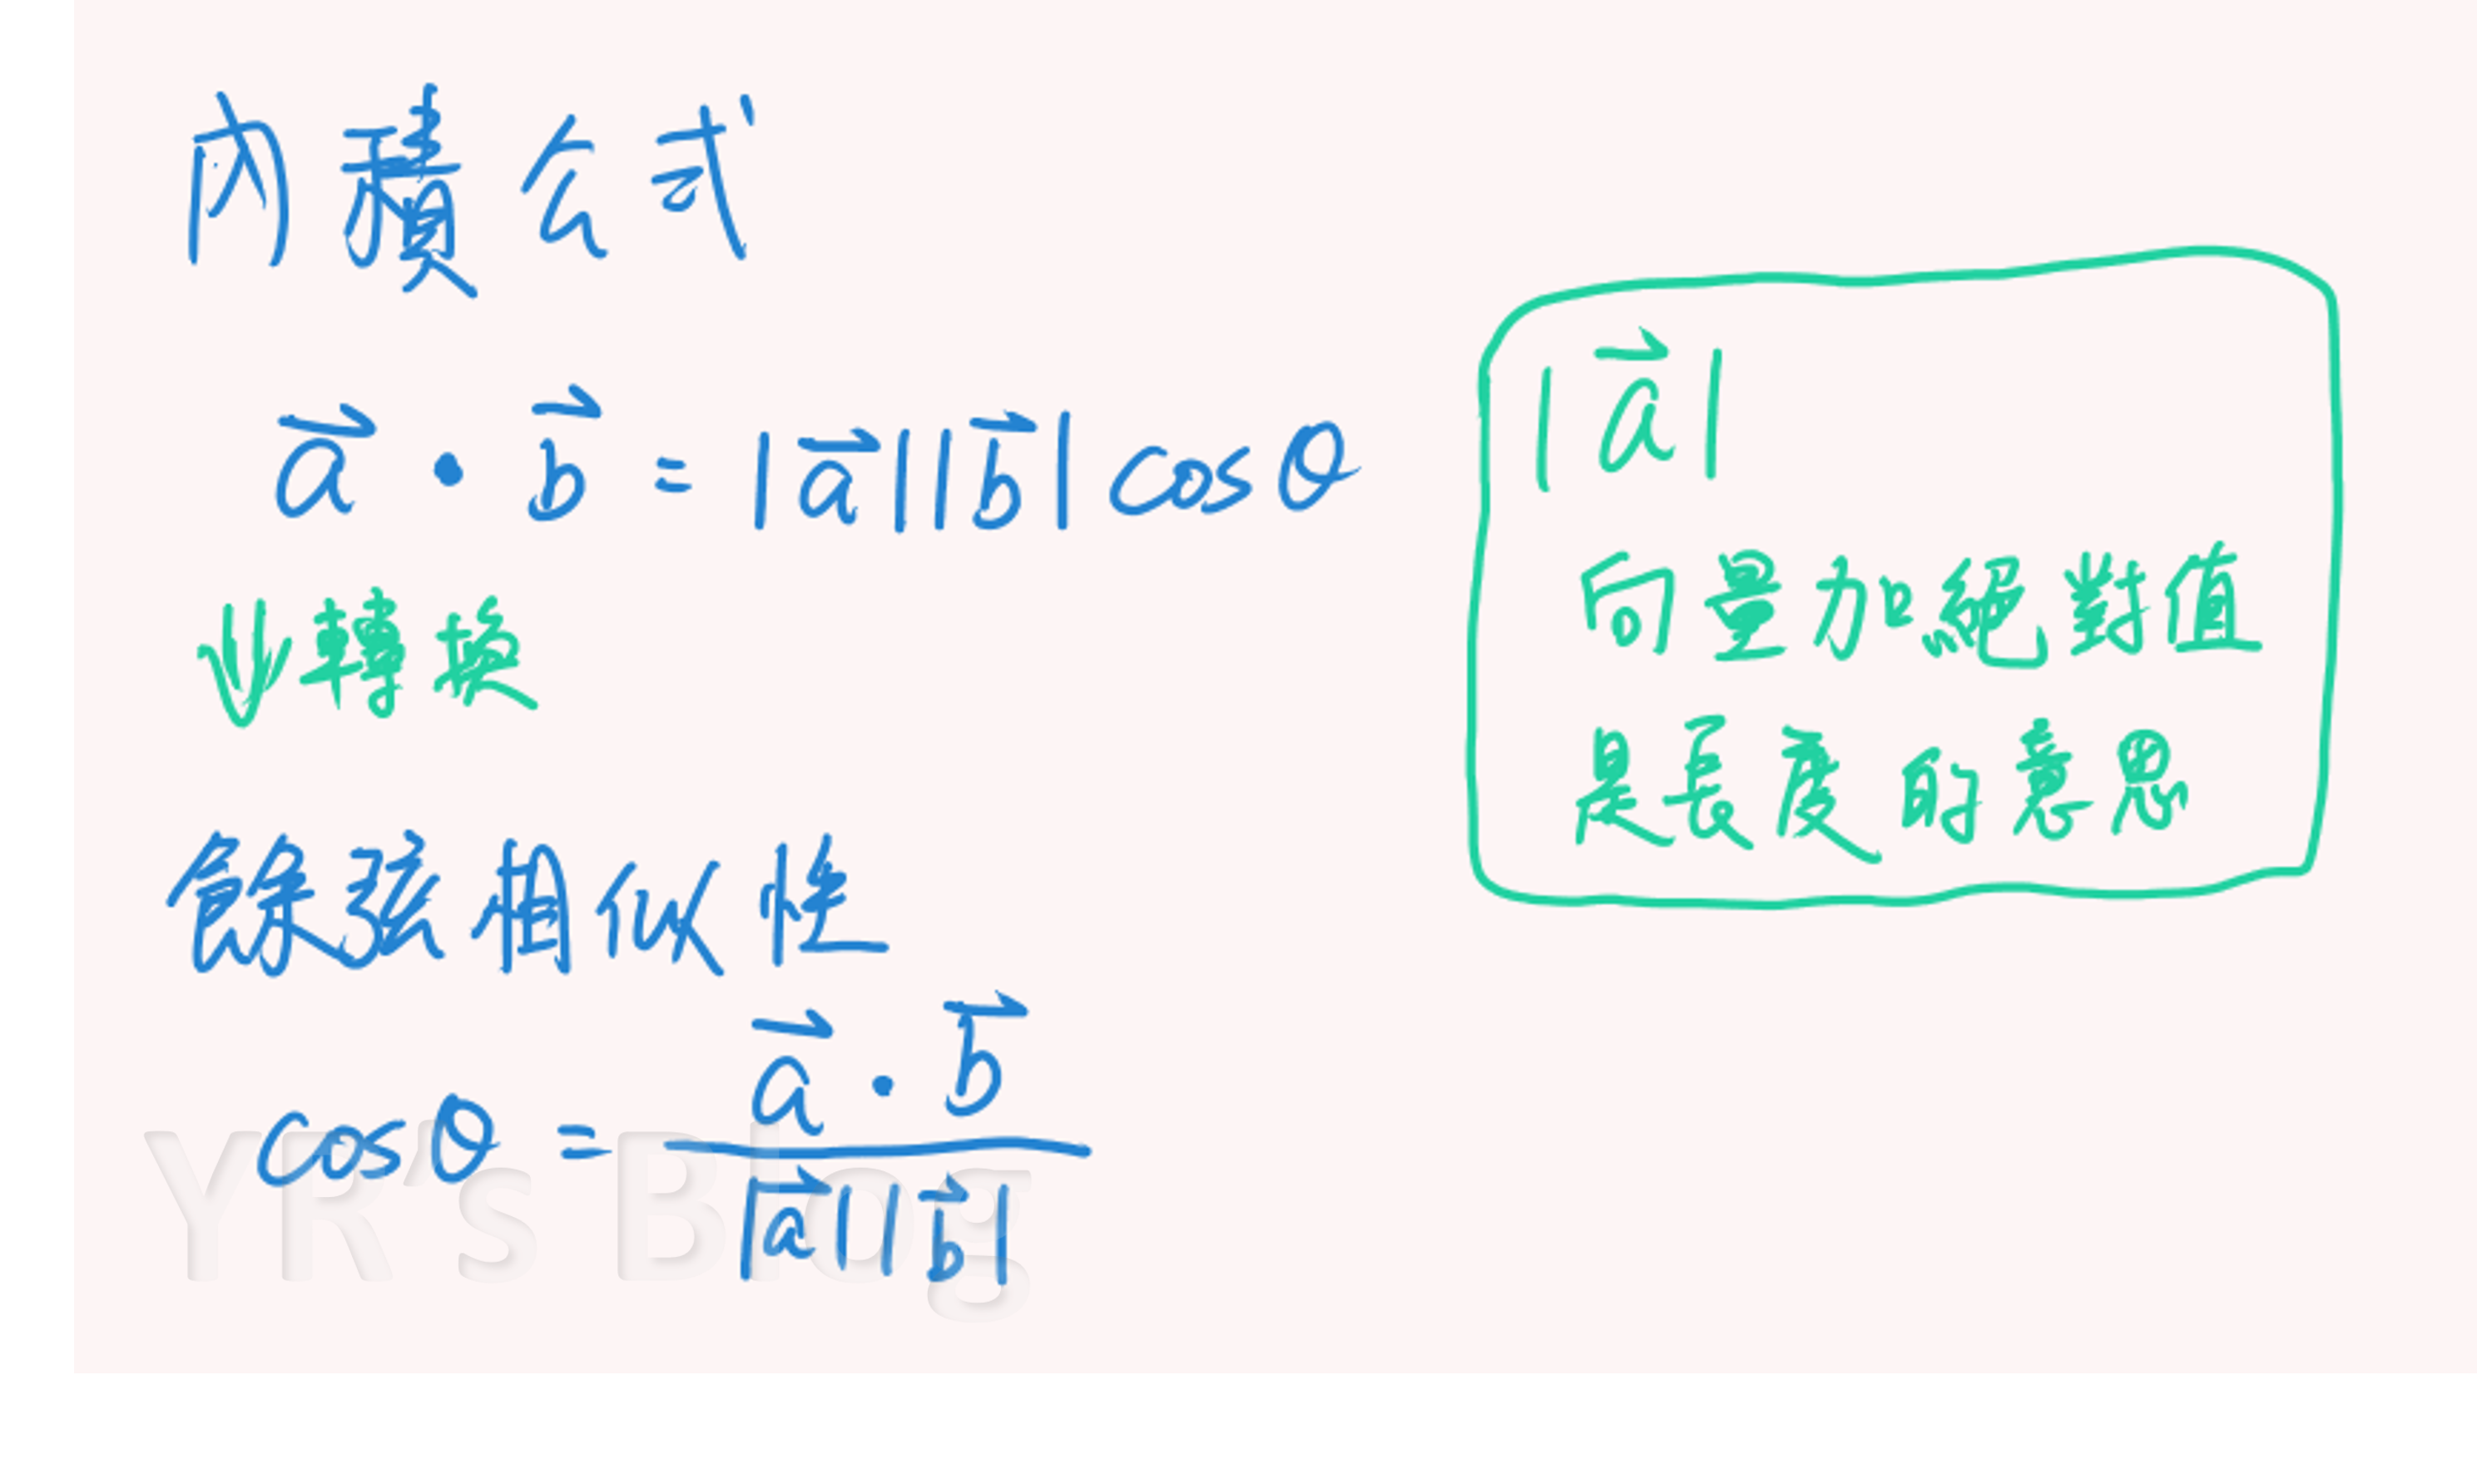 內積公式
a⃗ · b⃗ = |a⃗||b⃗| cosθ
⇓轉換
餘弦相似性
cosθ = a⃗ · b⃗ / |a⃗||b⃗|
|a⃗|
向量加絕對值
是長度的意思
YR's Blog